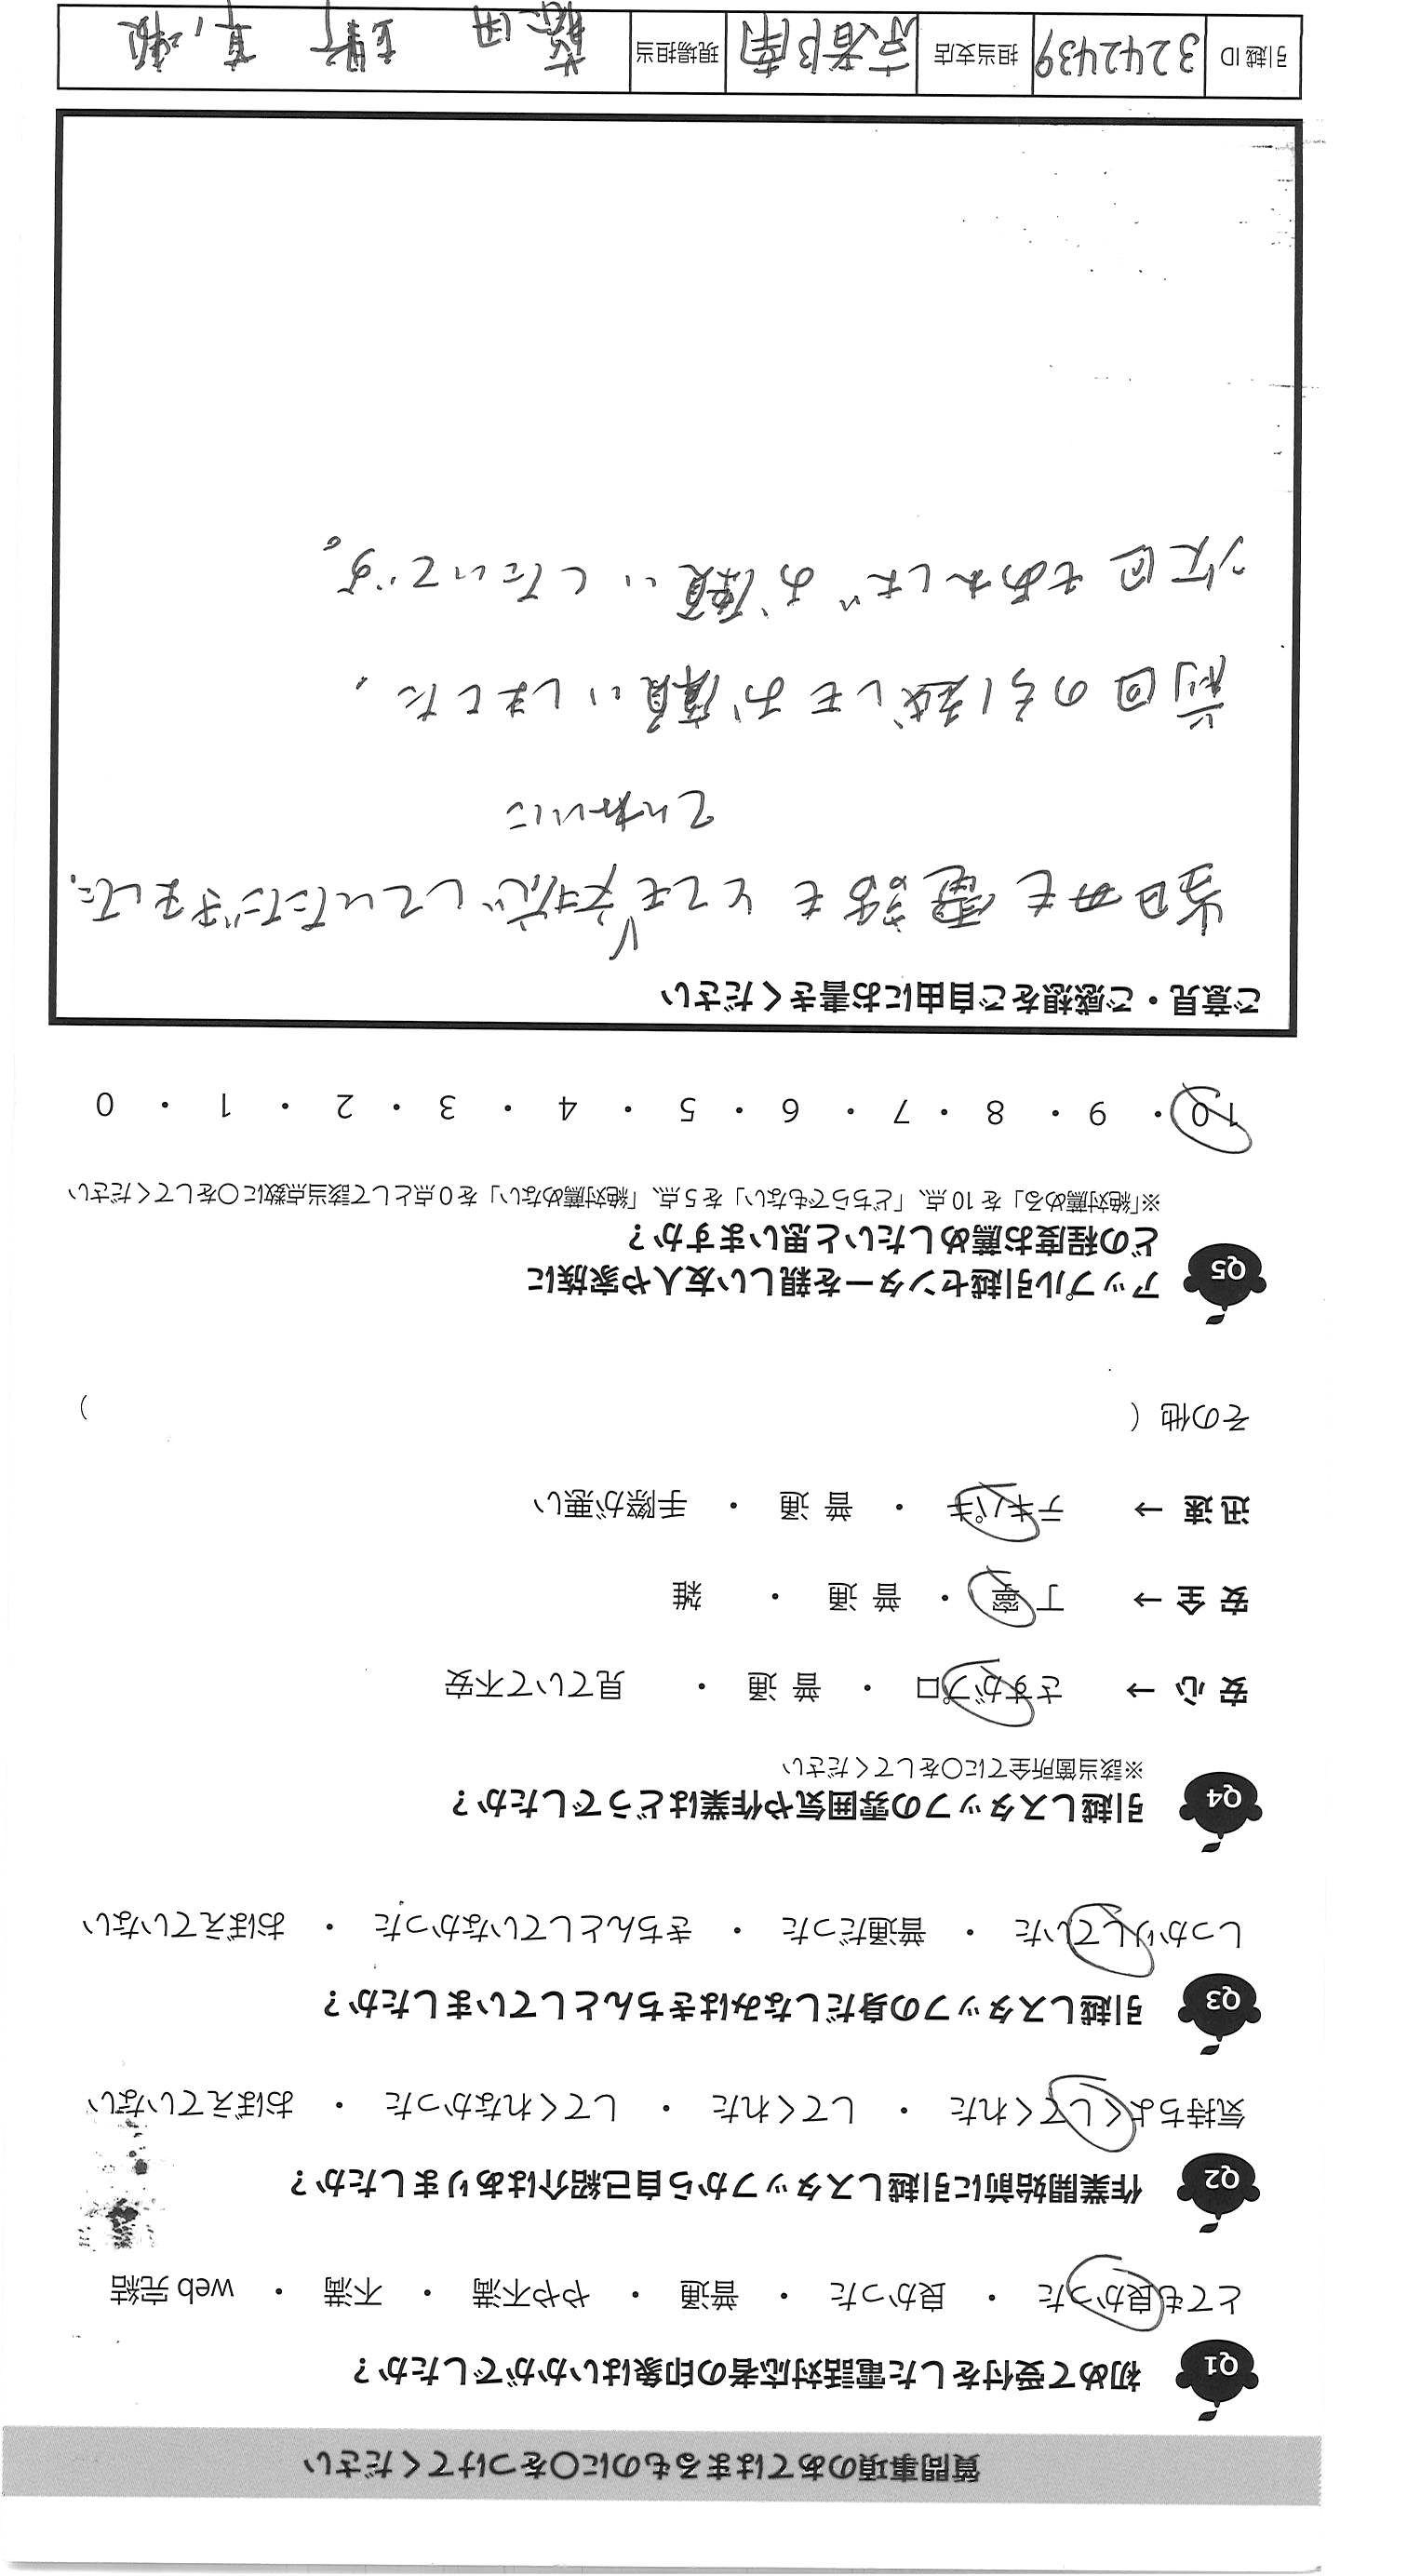 質問事項のあてはまるものに○をつけてください
Q1 初めて受付をした電話対応者の印象はいかがでしたか？
とても良かった ・ 良かった ・ 普通 ・ やや不満 ・ 不満 ・ web 完結
Q2 作業開始前に引越しスタッフから自己紹介はありましたか？
気持ちよくしてくれた ・ してくれた ・ してくれなかった ・ おぼえていない
Q3 引越しスタッフの身だしなみはきちんとしていましたか？
しっかりしていた ・ 普通だった ・ きちんとしていなかった ・ おぼえていない
Q4 引越しスタッフの雰囲気や作業はどうでしたか？
※該当箇所全てに○をしてください
安心 → さすがプロ ・ 普通 ・ 見ていて不安
安全 → 丁寧 ・ 普通 ・ 雑
迅速 → テキパキ ・ 普通 ・ 手際が悪い
その他（ ）
Q5 アップル引越センターを親しい友人や家族に
どの程度お薦めしたいと思いますか？
※「絶対薦める」を 10 点、「どちらでもない」を 5 点、「絶対薦めない」を 0 点として該当点数に○をしてください
10 ・ 9 ・ 8 ・ 7 ・ 6 ・ 5 ・ 4 ・ 3 ・ 2 ・ 1 ・ 0
ご意見・ご感想をご自由にお書きください
当日も電話もとても対応していただきました。
ていねいに
前回の引越しもお願いしました、
次回もあればお願いしたいです。
引越 ID 3242439 担当支店 京都南 現場担当 藤田